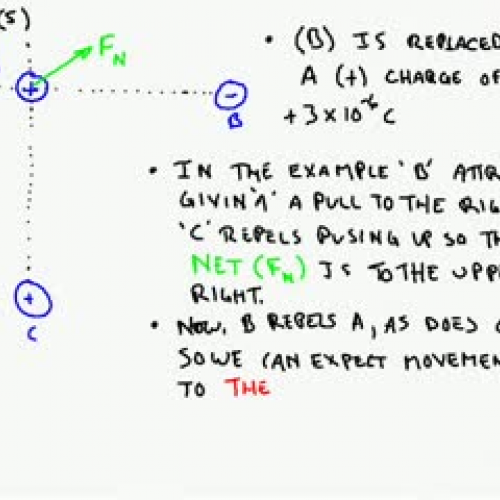 (5)
F_N
• (B) IS REPLACED
A (+) CHARGE OF
+
-
B
+3 x 10^-6 C
• IN THE EXAMPLE 'B'
GIVIN 'A' A PULL TO THE
'C' REPELS PUSING UP SO
NET (F_N) IS TO THE
RIGHT.
+
C
• NOW, B REPELS A, AS DOES
SO WE CAN EXPECT
TO THE